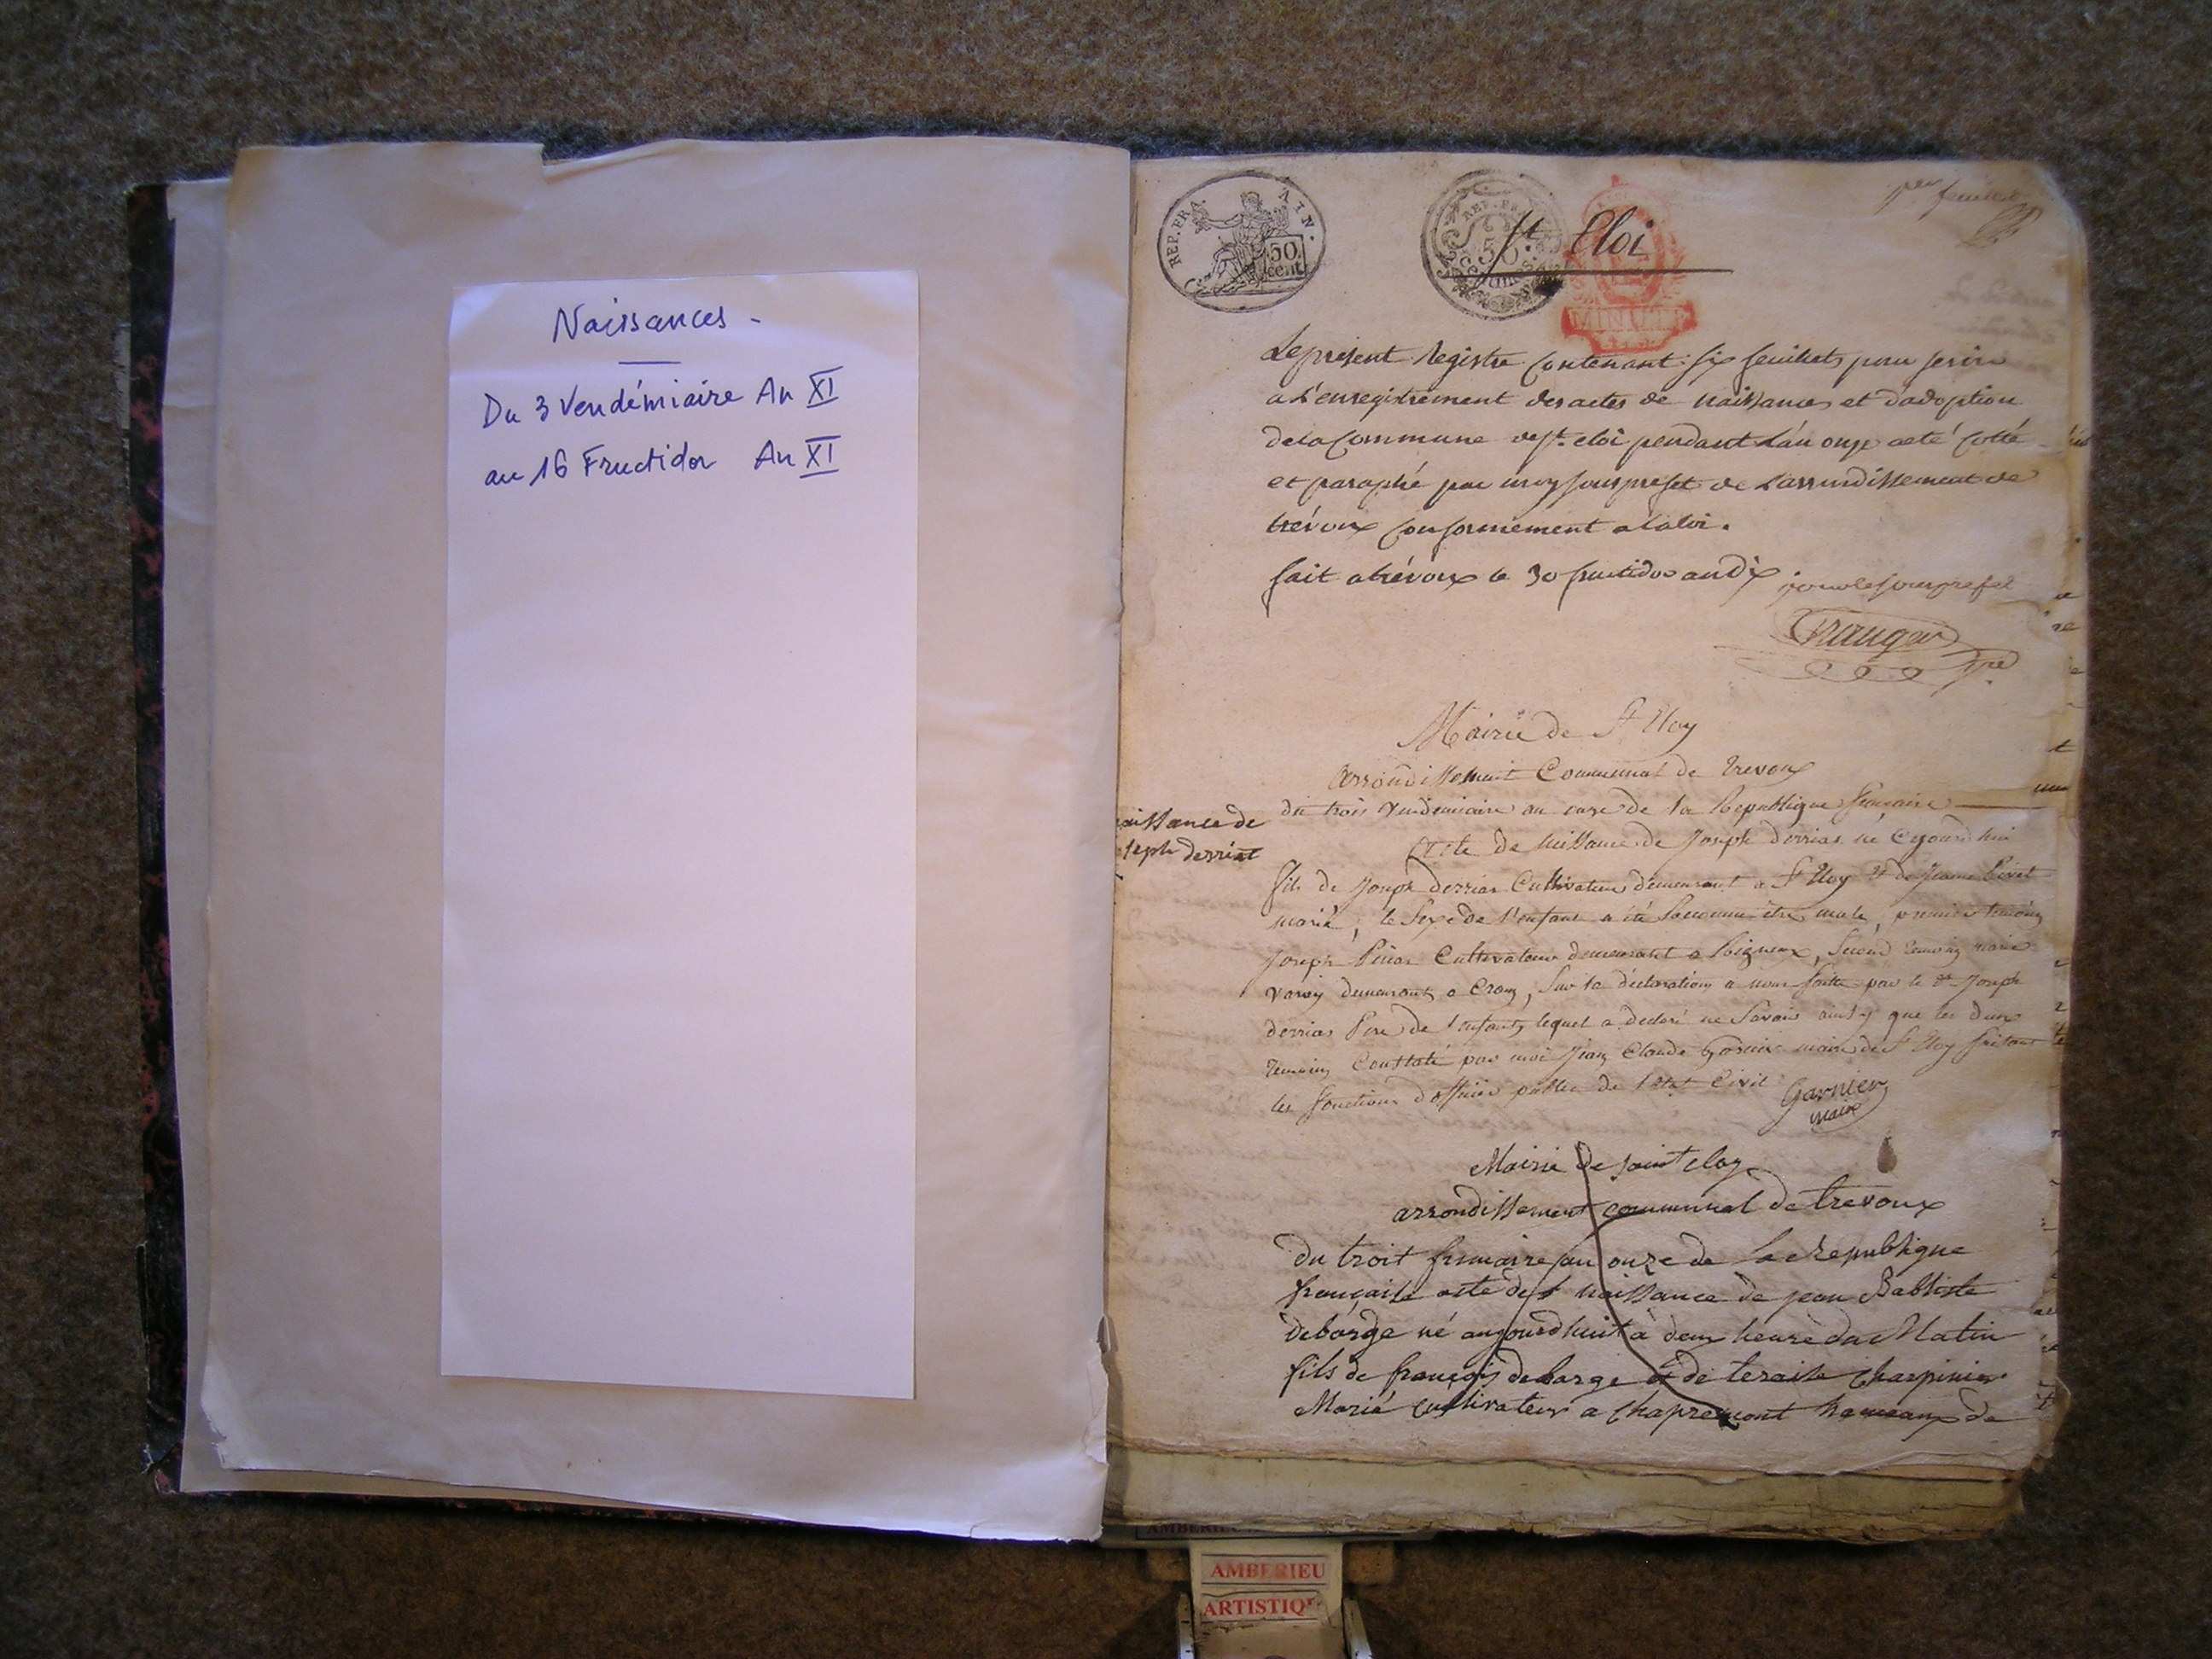 Naissances -
Du 3 Vendémiaire An XI
au 16 Fructidor An XI
REP. FRA.
AIN.
50
cent
St. Eloi
1er feuillet
Le présent Registre contenant six feuillets pour servir
a L'enregistrement des actes de naissances et d'adoption
de la Commune de st. eloi pendant L'an onze a eté cotté
et paraphé par moy sous prefet de L'arrondissement de
trévoux conformément a la loi.
fait a trévoux le 30 fructidor an dix
pour le sous prefet
Mairie de St Eloy
Arrondissement Communal de Trevoux
du trois vendemiaire an onze de la Republique francaise
aissance de
seph derrias
Acte de Naissance de Joseph derrias né cejourd'hui
fils de Joseph derrias Cultivateur demeurant a St Eloy et de Jeanne
marié, le sexe de l'enfant a été reconnu être male, premier temoin
Joseph Cultivateur demeurant a, second temoin marie
demeurant a Crans, sur la déclaration a nous faitte par le dt Joseph
derrias Pere de l'enfant, lequel a declaré ne savoir ainsy que les deux
temoins Constaté par moi Jean Claude Garnier maire de St Eloy faisant
les fonctions d'officier public de l'etat Civil
Garnier
maire
Mairie de saint eloy
arrondissement communal de trevoux
du troit frimaire an onze de la Republique
française acte de naissance de jean Babtiste
debarge né aujourdhuit à deux heure du Matin
fils de françois debarge et de teraise Charpinier
Marié cultivateur a Chapremont hameaux de
AMBERIEU
ARTISTIQ